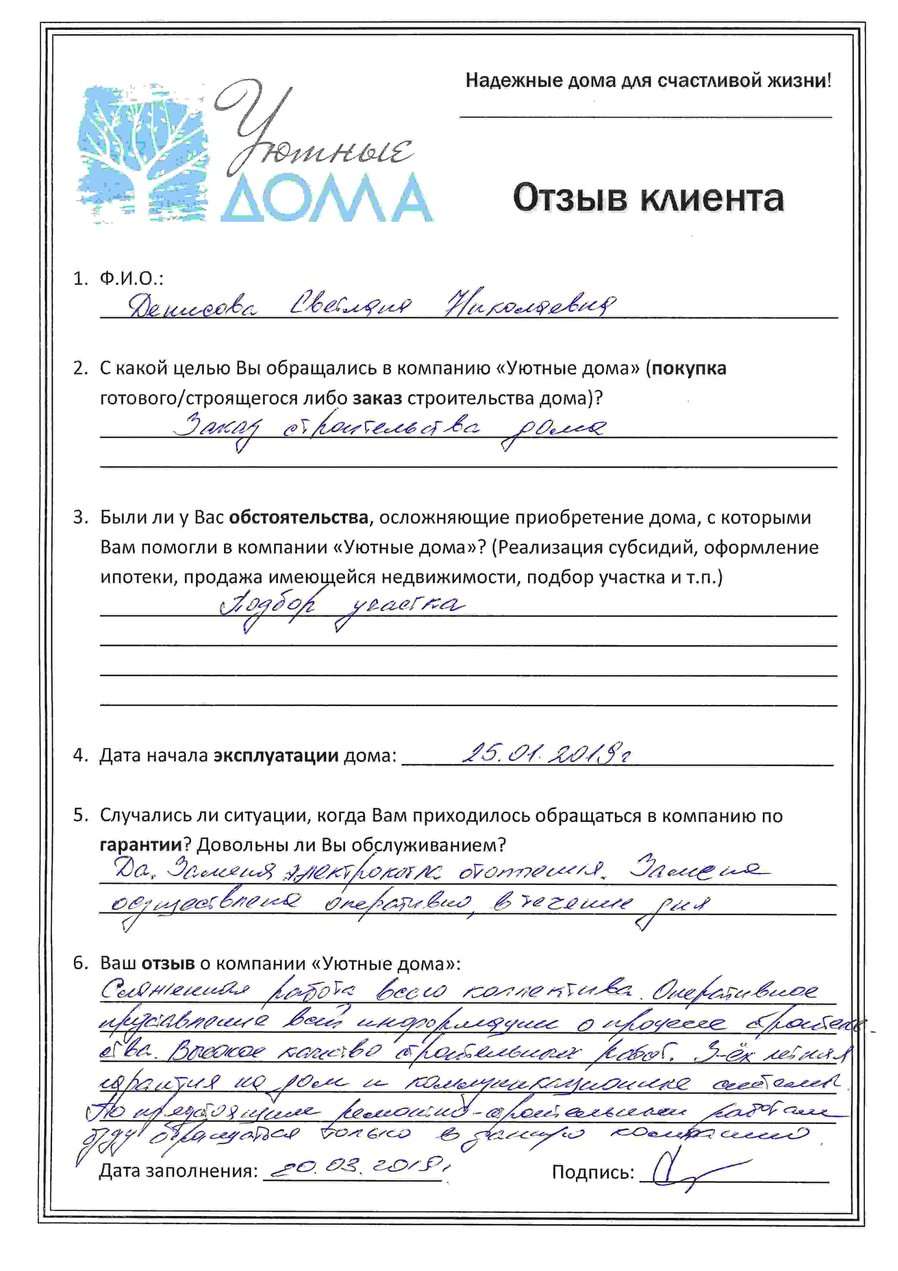 Уютные
ДОМА
Надежные дома для счастливой жизни!
Отзыв клиента
1. Ф.И.О.:
Денисова Светлана Николаевна
2. С какой целью Вы обращались в компанию «Уютные дома» (покупка
готового/строящегося либо заказ строительства дома)?
Заказ строительства дома
3. Были ли у Вас обстоятельства, осложняющие приобретение дома, с которыми
Вам помогли в компании «Уютные дома»? (Реализация субсидий, оформление
ипотеки, продажа имеющейся недвижимости, подбор участка и т.п.)
Подбор участка
4. Дата начала эксплуатации дома: 25.01.2019г
5. Случались ли ситуации, когда Вам приходилось обращаться в компанию по
гарантии? Довольны ли Вы обслуживанием?
Да. Замена электрокотла отопления. Замена
осуществлена оперативно, в течение дня
6. Ваш отзыв о компании «Уютные дома»:
Слаженная работа всего коллектива. Оперативное
представление всей информации о процессе строитель-
ства. Высокое качество строительных работ. 3-ёх летняя
гарантия на дом и коммуникационные системы.
По предстоящим ремонтно-строительным работам
буду обращаться только в данную компанию.
Дата заполнения: 20.03.2019г
Подпись: